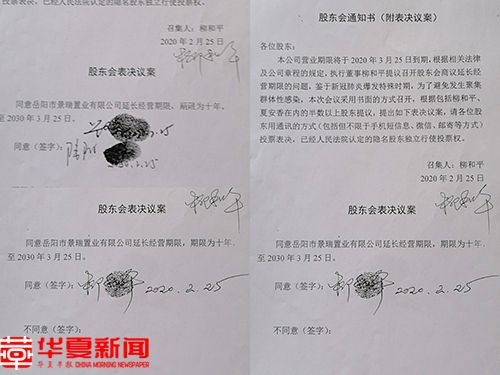 投票表决，已经人民法院认定的隐名股东独
召集人：柳和平
2020 年 2 月 25 日
柳和平
股东会表决议案
同意岳阳市景瑞置业有限公司延长经营期限，期限为十年，
至 2030 年 3 月 25 日。
2020.2.25
同意（签字）：
2020.2.25
柳和平
股东会表决议案
同意岳阳市景瑞置业有限公司延长经营期限，期限为十年，
至 2030 年 3 月 25 日。
同意（签字）： 2020.2.25
不同意（签字）：
股东会通知书（附表决议案）
各位股东：
本公司营业期限将于 2020 年 3 月 25 日到期，根据相关法律
及公司章程的规定，执行董事柳和平提议召开股东会商议延长经
营期限的问题，鉴于新冠肺炎爆发特殊时期，为了避免发生聚集
群体性感染，本次会议采用书面的方式召开，根据包括柳和平、
夏安香在内的半数以上股东提议，提出如下表决议案，请各位股
东用通讯的方式（包括但不限于手机短信、微信、邮寄等方式）
投票表决，已经人民法院认定的隐名股东独立行使投票权。
召集人：柳和平
2020 年 2 月 25 日
柳和平
股东会表决议案
同意岳阳市景瑞置业有限公司延长经营期限，期限为十年，
至 2030 年 3 月 25 日。
同意（签字）： 2020.2.25
不同意（签字）：
华夏新闻
华夏早报 CHINA MORNING NEWSPAPER